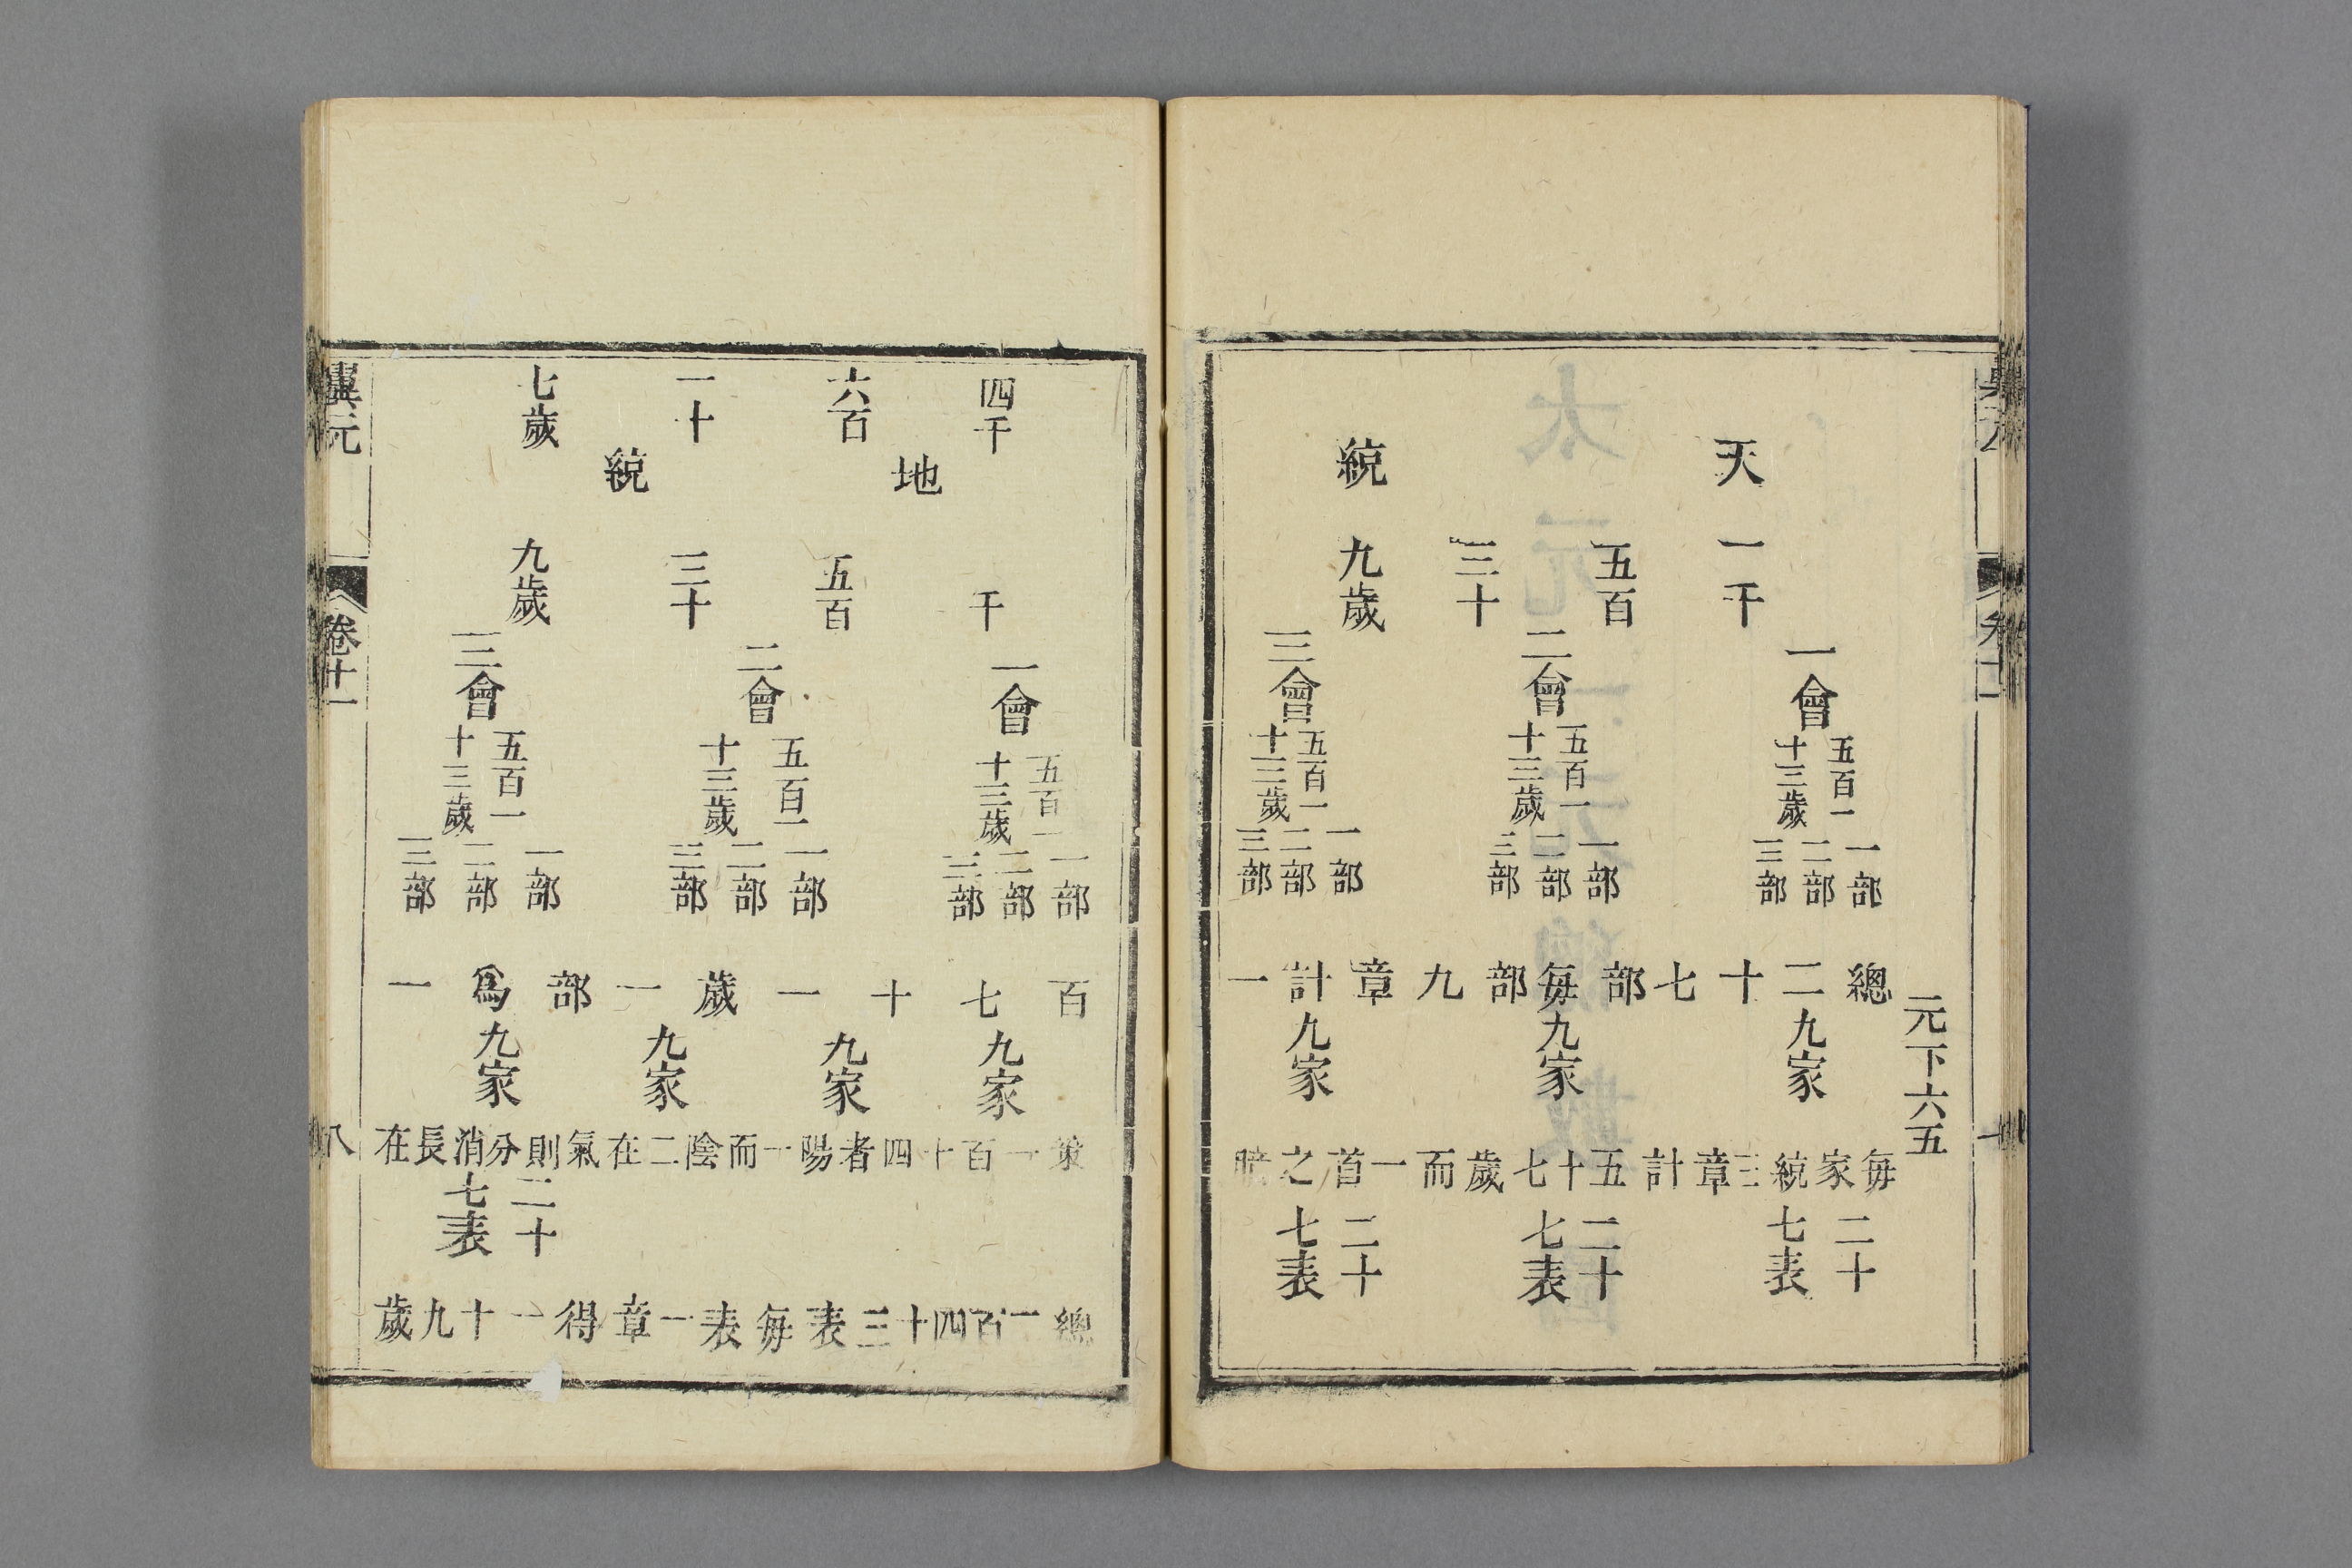 元下六五
天　統
一千　五百　三十　九歲
一會　二會　三會
五百一十三歲　五百一十三歲　五百一十三歲
一部　二部　三部　一部　二部　三部　一部　二部　三部
總二十七部每部九章計一
九家　九家　九家
每家統三章計五十七歲而一首之
二十七表　二十七表　二十七表
卷十一
四千　六百　一十　七歲
地　統
千　五百　三十　九歲
一會　二會　三會
五百一十三歲　五百一十三歲　五百一十三歲
一部　二部　三部　一部　二部　三部　一部　二部　三部
百七十一歲一部為一
九家　九家　九家　九家
策一百十四者陽一而陰二在氣則分消長在
二十七表
總一百四十三表每表一章得一十九歲
翼元
卷十一
八